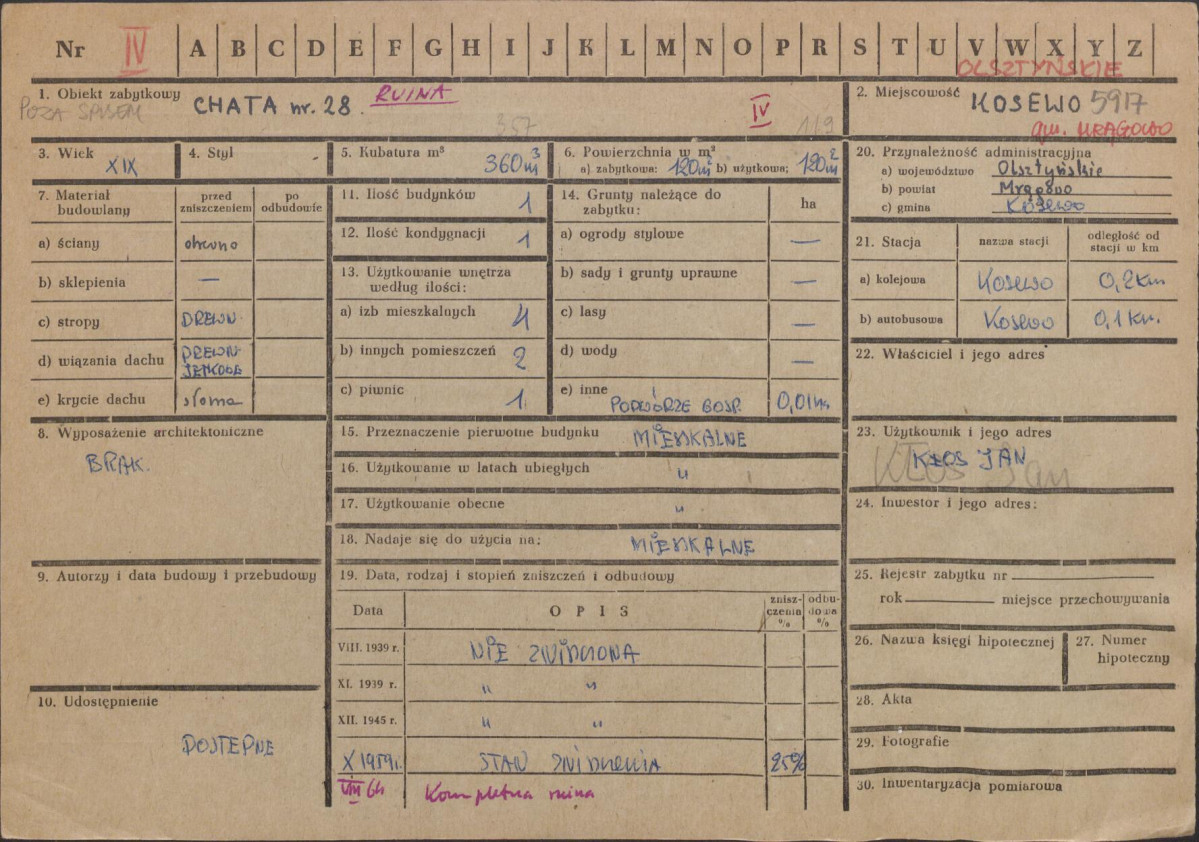 Nr IV A B C D E F G H I J K L M N O P R S T U V W X Y Z
OLSZTYŃSKIE
1. Obiekt zabytkowy CHATA nr. 28. RUINA
POZA SPISEM
357
IV
119
2. Miejscowość KOSEWO 5917
gm. MRĄGOWO
3. Wiek XIX
4. Styl
5. Kubatura m³ 360 m³
6. Powierzchnia w m²
a) zabytkowa: 120 m² b) użytkowa: 120 m²
7. Materiał budowlany
przed zniszczeniem
po odbudowie
a) ściany drewno
b) sklepienia —
c) stropy DREWN
d) wiązania dachu DREWN
e) krycie dachu słoma
8. Wyposażenie architektoniczne
BRAK.
9. Autorzy i data budowy i przebudowy
10. Udostępnienie
DOSTĘPNE
11. Ilość budynków 1
12. Ilość kondygnacji 1
13. Użytkowanie wnętrza według ilości:
a) izb mieszkalnych 4
b) innych pomieszczeń 2
c) piwnic 1.
14. Grunty należące do zabytku: ha
a) ogrody stylowe —
b) sady i grunty uprawne —
c) lasy —
d) wody —
e) inne PODWÓRZE GOSP. 0,01 ha
15. Przeznaczenie pierwotne budynku MIESZKALNE
16. Użytkowanie w latach ubiegłych "
17. Użytkowanie obecne "
18. Nadaje się do użycia na: MIESZKALNE
19. Data, rodzaj i stopień zniszczeń i odbudowy
Data
OPIS
zniszczenia %
odbudowa %
VIII. 1939 r. NIE ZNISZCZONA
XI. 1939 r. " "
XII. 1945 r. " "
X 1959 r. STAN ZNISZCZENIA 25%
VIII 64 Kompletna ruina
20. Przynależność administracyjna
a) województwo Olsztyńskie
b) powiat Mrągowo
c) gmina Kosewo
21. Stacja
nazwa stacji
odległość od stacji w km
a) kolejowa Kosewo 0,2 km
b) autobusowa Kosewo 0,1 km.
22. Właściciel i jego adres
23. Użytkownik i jego adres
KŁOS JAN
Kłos Jan
24. Inwestor i jego adres:
25. Rejestr zabytku nr
rok miejsce przechowywania
26. Nazwa księgi hipotecznej
27. Numer hipoteczny
28. Akta
29. Fotografie
30. Inwentaryzacja pomiarowa